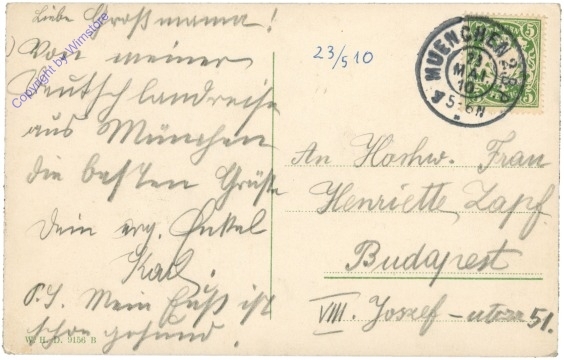 Liebe Großmama!
Von meiner
Deutschlandreise
aus München
die besten Grüße
dein erg. Enkel
Karl.
P.S. Mein Fuß ist
schon gesund.
W. H. D. 9156 B
Copyright by Wimstore
23/5 10
MUENCHEN 2.B.P.
23
MAI
10
5-6N
5
5
An Hochw. Frau
Henriette Zapf
Budapest
VIII. Joszef-utcza 51.